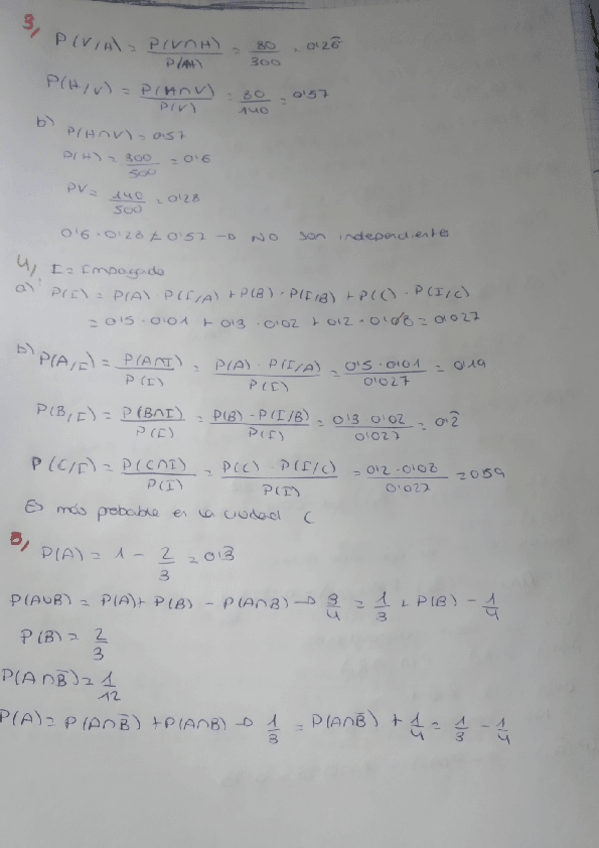 3,
P(V/H) = P(V∩H)/P(H) = 80/300 = 0'26̄
P(H/V) = P(H∩V)/P(V) = 80/140 = 0'57
b) P(H∩V) = 0'57
P(H) = 300/500 = 0'6
PV = 140/500 = 0'28
0'6 · 0'28 ≠ 0'57 → NO son independientes
4, I = Impagado
a) P(I) = P(A) · P(I/A) + P(B) · P(I/B) + P(C) · P(I/C)
= 0'5 · 0'01 + 0'3 · 0'02 + 0'2 · 0'08 = 0'027
b) P(A/I) = P(A∩I)/P(I) = P(A) · P(I/A)/P(I) = 0'5 · 0'01/0'027 = 0'19
P(B/I) = P(B∩I)/P(I) = P(B) · P(I/B)/P(I) = 0'3 · 0'02/0'027 = 0'2̄
P(C/I) = P(C∩I)/P(I) = P(C) · P(I/C)/P(I) = 0'2 · 0'08/0'027 = 0'59
Es más probable en la ciudad C
5,
P(A) = 1 - 2/3 = 0'3̄
P(A∪B) = P(A) + P(B) - P(A∩B) → 3/4 = 1/3 + P(B) - 1/4
P(B) = 2/3
P(A∩B̄) = 1/12
P(A) = P(A∩B̄) + P(A∩B) → 1/3 = P(A∩B̄) + 1/4 = 1/3 - 1/4